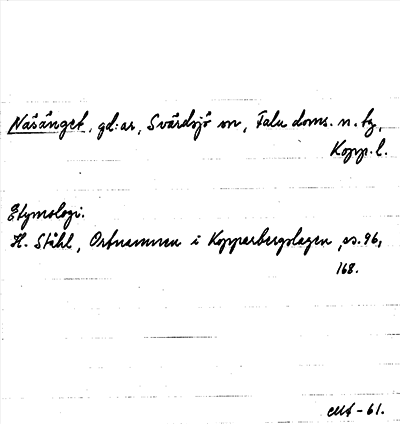 Näsänget, gd:ar, Svärdsjö sn, Falu doms. n. tg,
Kopp. l.
Etymologi.
H. Ståhl, Ortnamnen i Kopparbergslagen, ss. 96,
168.
-61.